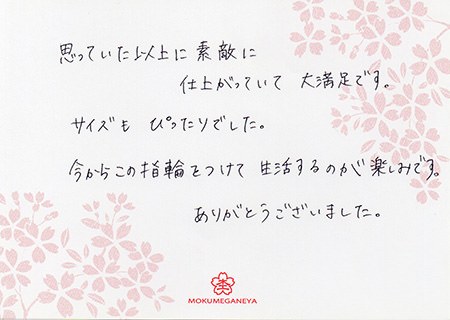 思っていた以上に素敵に
仕上がっていて 大満足です。
サイズも ぴったりでした。
今からこの指輪をつけて 生活するのが楽しみです。
ありがとうございました。
MOKUMEGANEYA